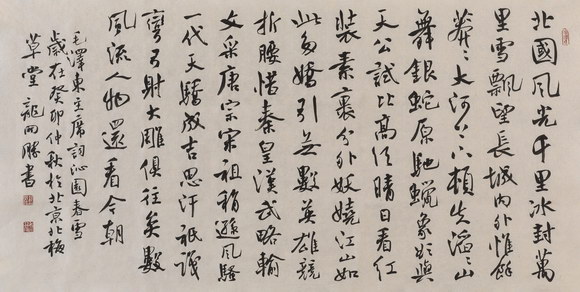 北國風光千里冰封萬
里雪飄望長城內外惟餘
莽〻大河上下頓失滔〻山
舞銀蛇原馳蠟象欲與
天公試比高須晴日看紅
裝素裹分外妖嬈江山如
此多嬌引無數英雄競
折腰惜秦皇漢武略輸
文采唐宗宋祖稍遜風騷
一代天驕成吉思汗祇識
彎弓射大雕俱往矣數
風流人物還看今朝
毛澤東主席詞沁園春雪
歲在癸卯仲秋於北京北梅
草堂 龍開勝書